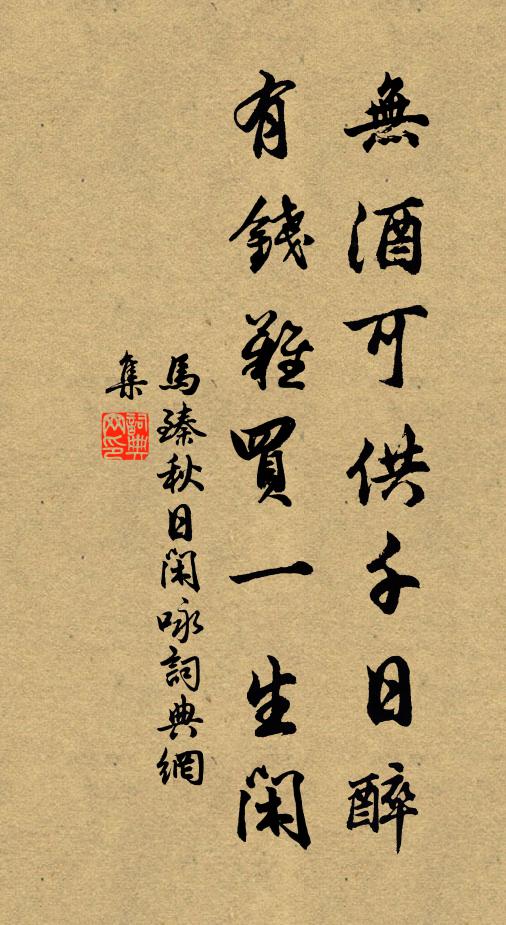 無酒可供千日醉
有錢難買一生閑
馬臻秋日閑咏詞典網
集
詞典網印